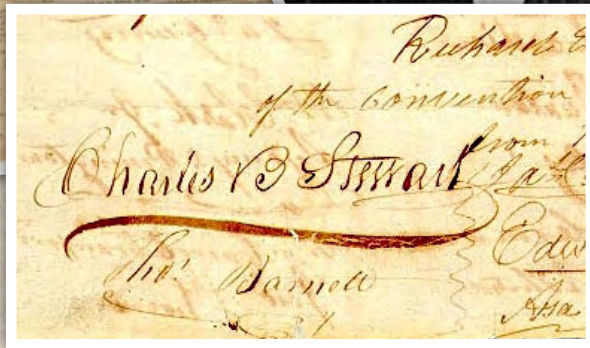 Richard E
of the Convention
from
Charles B Stewart
Edw
Thos Barnett
Asa